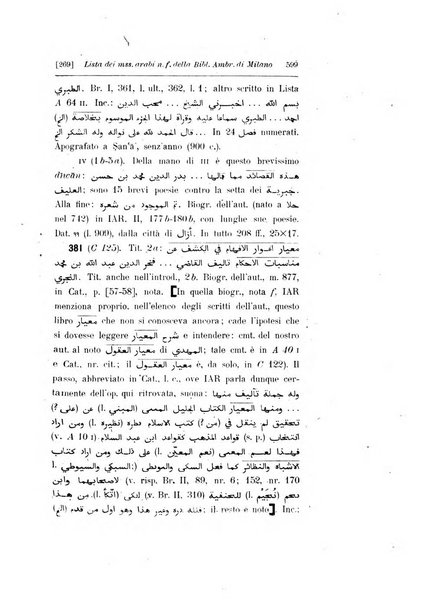 [269] Lista dei mss. arabi n. f. della Bibl. Ambr. di Milano 599
Br. I, 361, l. ult., 362, l. 1; altro scritto in Lista الطبري
A 64 II. Inc.: بسم الله ... اخبرني الشيخ ... محب الدين
بن ... وسماعا عليه لهذا الجزء الموسوم بخلاصة (الخ)
وله الحمد تم ... قال وله الشكر الخ. In 24 fin numerati.
Apografato a Ṣan'ā', senz'anno (900 c.).
IV (1b-5a). Della mano di III è questo brevissimo
dīwān: هذه القصائد ... مما قاله ... بدر الدين محمد بن حسن
العليف: sono 15 brevi poesie contro la setta dei جبرية.
Alla fine: تم الموجود من شعره. Biogr. dell'aut. (nato a حلا
nel 742) in IAR. II, 177b-180b, con lunghe sue poesie.
Dat. 99 (l. 909), dalla città di أزال. In tutto 208 ff., 25×17.
381 (C 125). Tit. 2a: معيار اغوار الافهام في الكشف عن
مناسبات الاحكام تاليف القاضي ... فخر الدين عبد الله بن محمد
النجري. Tit. anche nell'introd., 2b. Biogr. dell'aut., m. 877,
in Cat., p. [57-58], nota. [In quella biogr., nota f, IAR
menziona proprio, nell'elenco degli scritti dell'aut., questo
libro che non si conosceva ancora; cade l'ipotesi che معيار
si dovesse leggere شرح المعيار e intendere: cmt. del nostro
aut. al noto معيار العقول di المهدي; tale cmt. è in A 40 I
e Cat., nr. cit.; il معيار العقول è, da solo, in C 122). Il
passo, abbreviato in Cat., l. c., ove IAR parla dunque cer-
tamente dell'op. qui ritrovata, suona: وله جملة تصانيف
... ومنها المعيار الكتاب الجليل المعمى (المبني l.) على (?)
التحقيق لم ينقل في (?) كتب الاسلام نظره (نظيره l.) ومن اراد
انتخاب (s. p.) قواعد ابن عبد السلام (v. A 10 I)
فهو المعمى (نعم المعيّن l.) على ذلك ومن اراد
الاشباه والنظائر فعمل السكى والمودطى (السبكي والسيوطي l.):
v. risp. Br. II, 89, nr. 6; 152, nr. 170) لاصحابهما وابن
نحم (نُجَيْم l.) للحنفية (v. Br. II, 310) لتكى (اتّكأ l.)
من هذا دره وغير هذا وهو اول من: il resto e note]. Inc.: